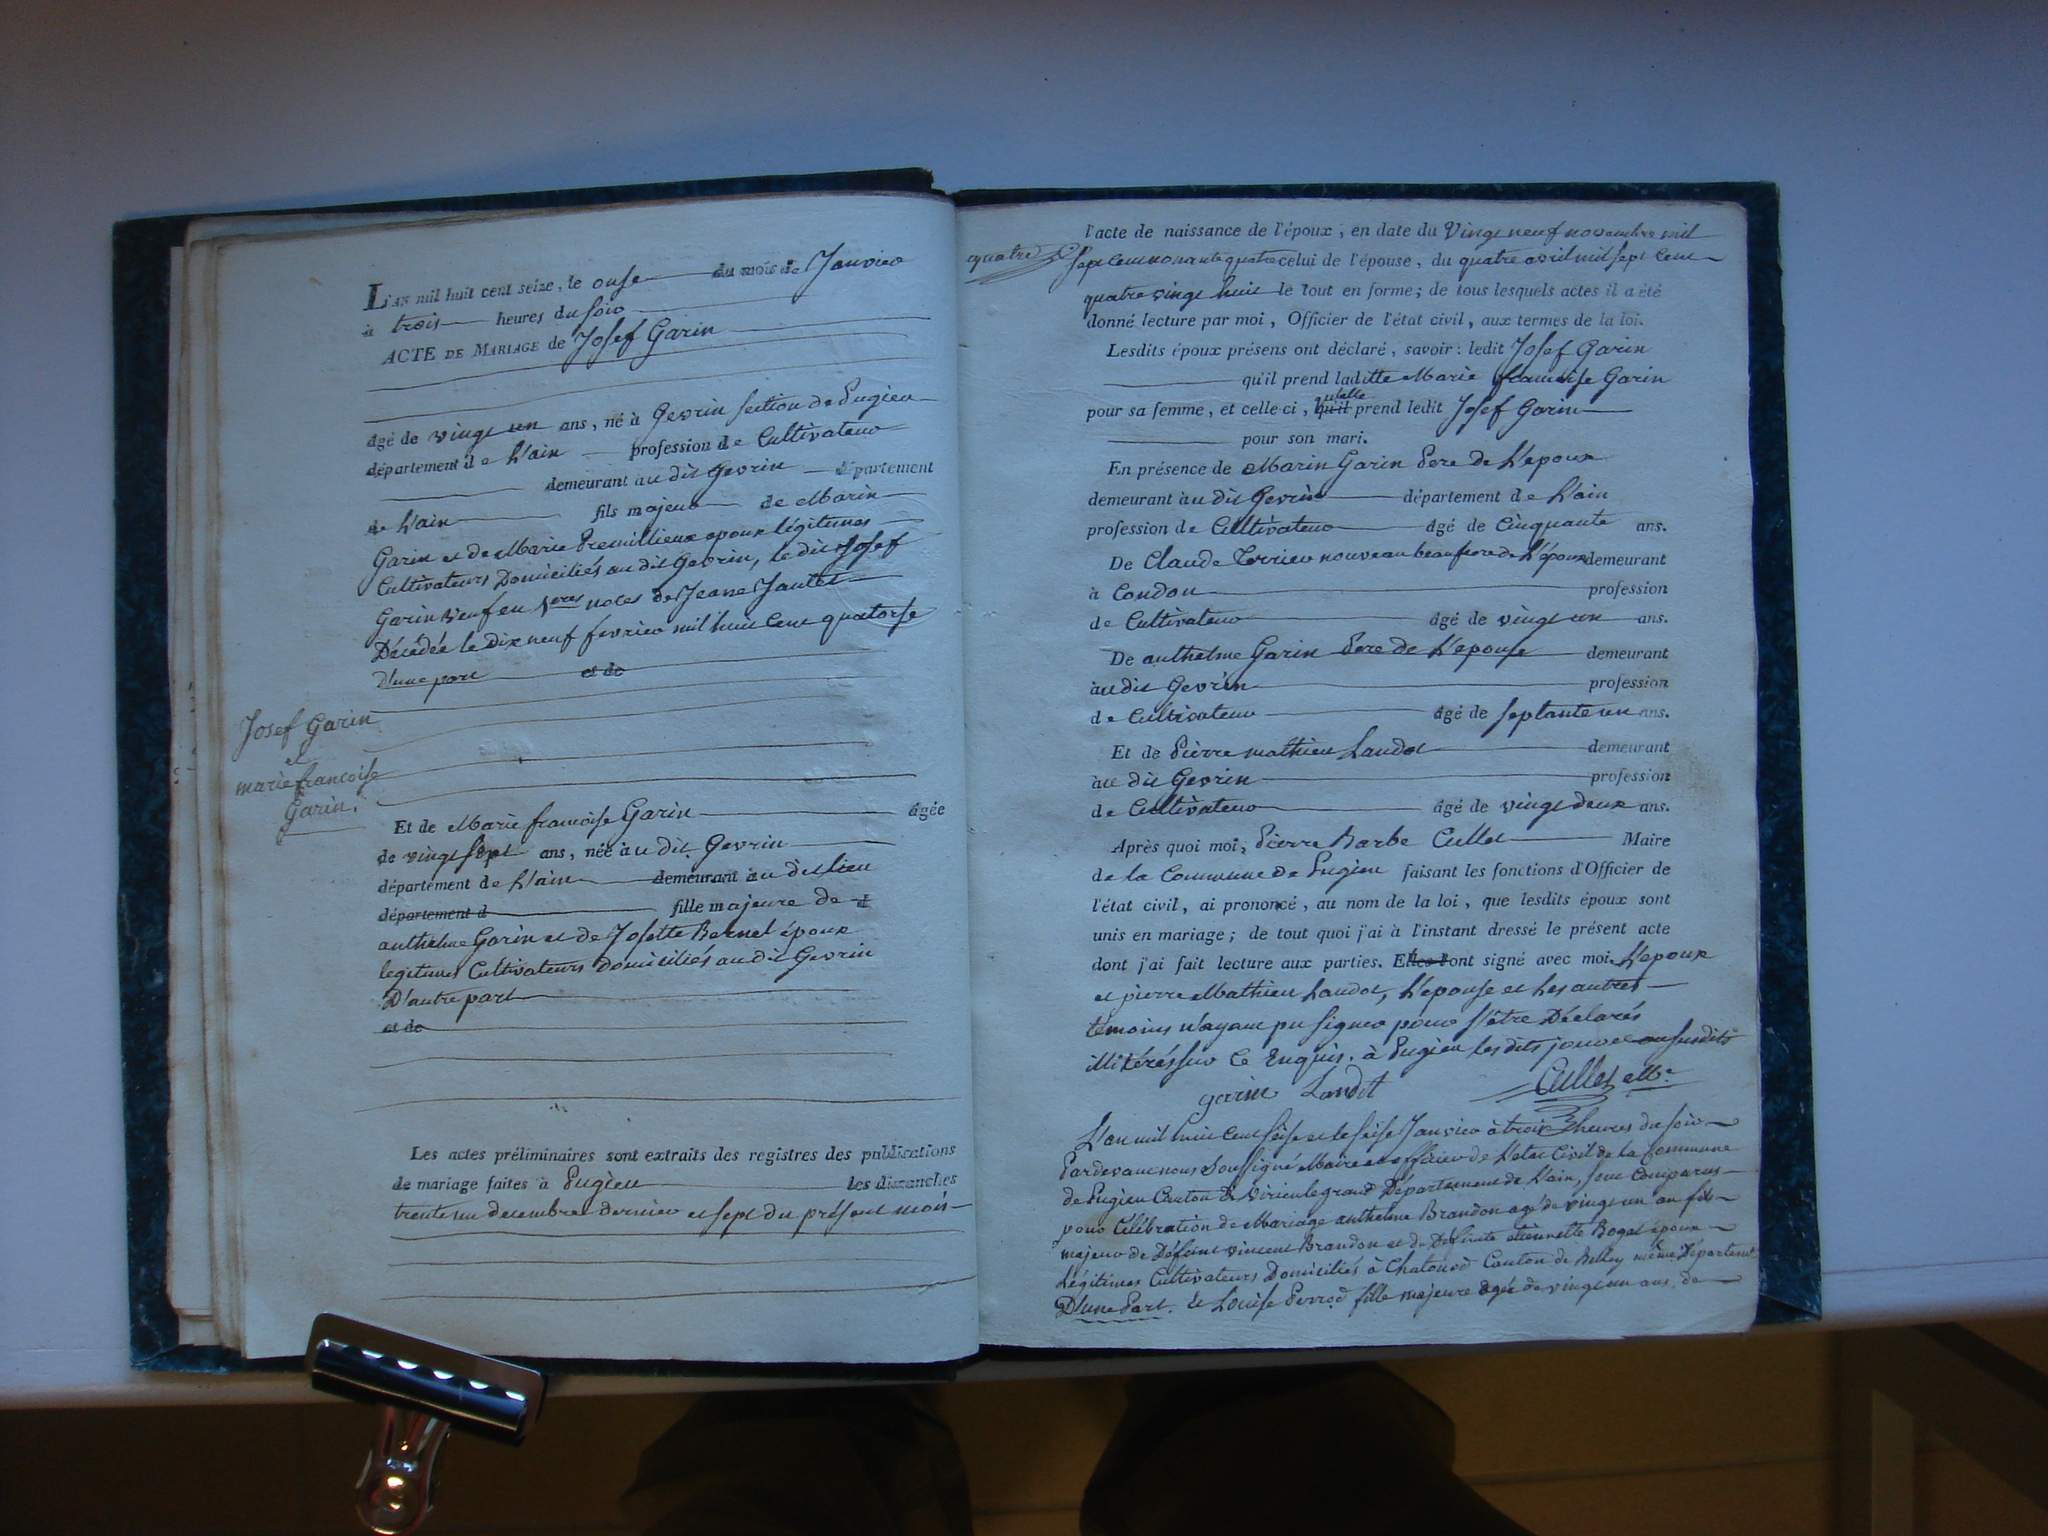 L'AN mil huit cent seize, le onse du mois de Janvier
à trois heures du soir
ACTE DE MARIAGE de Josef Garin
âgé de vingt un ans, né à Gevrin section de Pugieu
département de L'ain profession de Cultivateur
demeurant au dit Gevrin département
de L'ain fils majeur de Marin
Garin et de Marie Premillieux epoux légitimes
Cultivateurs Domiciliés au dit Gevrin, le dit Josef
Garin Veuf en 1eres noces de Jeane Jantet
Décédée le dix neuf fevrier mil huit Cent quatorse
D'une part et de
Josef Garin
et
marie francoise
Garin.
Et de Marie francoise Garin âgée
de vingt sept ans, née au dit Gevrin
département de L'ain demeurant au dit lieu
département d fille majeure de
anthelme Garin et de Josette Bernel époux
legitimes Cultivateurs domiciliés au dit Gevrin
D'autre part
et de
Les actes préliminaires sont extraits des registres des publications
de mariage faites à Pugieu les dimanches
trente un decembre dernier et sept du présent mois
l'acte de naissance de l'époux, en date du Vingt neuf novembre mil
quatre
Sept Cent nonante quatre celui de l'épouse, du quatre avril mil sept Cent
quatre vingt huit le tout en forme; de tous lesquels actes il a été
donné lecture par moi, Officier de l'état civil, aux termes de la loi.
Lesdits époux présens ont déclaré, savoir: ledit Josef Garin
qu'il prend laditte Marie francoise Garin
pour sa femme, et celle-ci, qu'il qu'elle prend ledit Josef Garin
pour son mari.
En présence de Marin Garin Pere de L'epoux
demeurant au dit Gevrin département de L'ain
profession de Cultivateur âgé de Cinquante ans.
De Claude Terrier nouveau beaufrere de L'époux demeurant
à Condon profession
de Cultivateur âgé de vingt un ans.
De anthelme Garin Pere de L'epouse demeurant
au dit Gevrin profession
de Cultivateur âgé de septante un ans.
Et de Pierre mathieu Landot demeurant
au dit Gevrin profession
de Cultivateur âgé de vingt deux ans.
Après quoi moi, Pierre Barbe Cullet Maire
de la Commune de Pugieu faisant les fonctions d'Officier de
l'état civil, ai prononcé, au nom de la loi, que lesdits époux sont
unis en mariage; de tout quoi j'ai à l'instant dressé le présent acte
dont j'ai fait lecture aux parties. Et ont signé avec moi L'epoux
et pierre Mathieu Landot, L'epouse et Les autres
témoins n'ayant pu signer pour s'être Déclarés
illitérés sur ce Enquis. à Pugieu les dits jour et an susdits
garin Landot Cullet Me.
L'an mil huit Cent seise et le seise Janvier à trois heures du soir
Pardevant nous soussigné Maire et officier de L'etat Civil de la Commune
de Pugieu Canton de Virieu le grand Département de L'ain, sont Comparus
pour Célébration de Mariage anthelme Brandon agé de vingt un an fils
majeur de Défunt vincent Brandon et de Défunte etiennette Bogat époux
Légitimes Cultivateurs Domiciliés à Chatonod Canton de Belley même Départemt
D'une Part. Et Louise Perrod fille majeure agée de vingt un ans, de